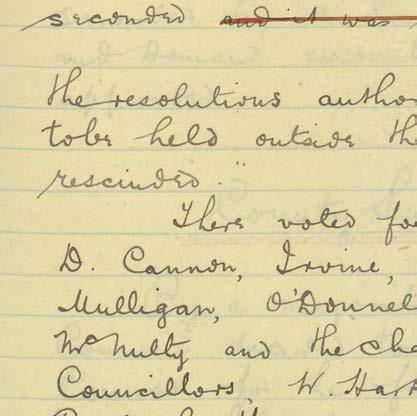 seconded and it was
the resolutions autho
tobe held outside th
rescinded."
There voted fo
D. Cannon, Irvine,
Mulligan, O'Donnel
McNulty and the cha
Councillors, W. Har